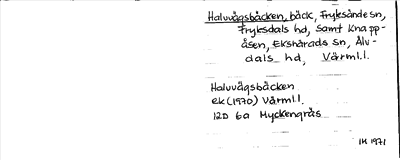 Halvvägsbäcken, bäck, Fryksände sn,
Fryksdals hd, samt Knapp-
åsen, Ekshärads sn, Älv-
dals hd, Värml.l.
Halvvägsbäcken
ek (1970) Värml.l.
12D 6a Myckengrås
IM 1971